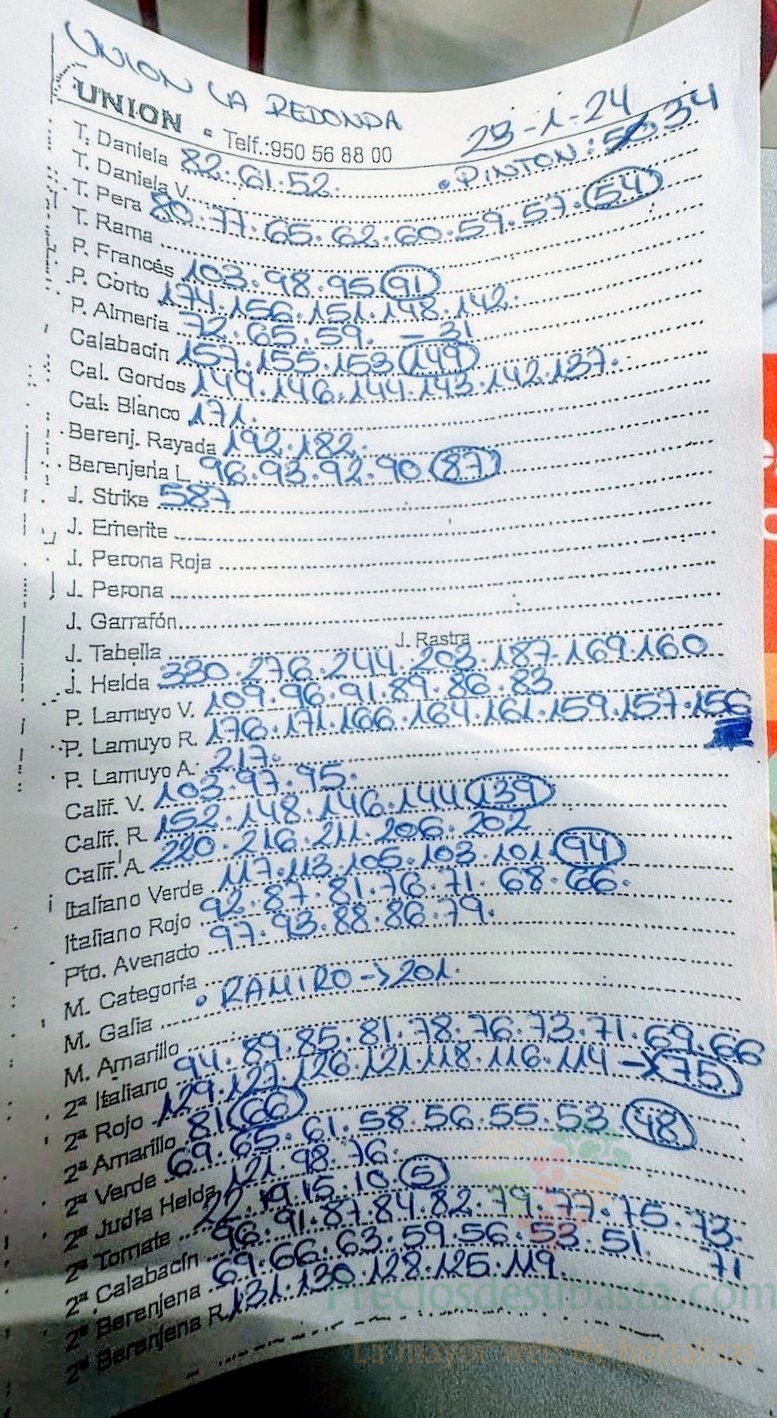 UNION LA REDONDA
UNION • Telf.:950 56 88 00 29-1-24
T. Daniela 82.61.52. • PINTON: 34
T. Daniela V.
T. Pera 80.77.65.62.60.59.57.54
T. Rama
P. Francés 103.98.95 91
P. Corto 174.156.151.148.142.
P. Almeria 72.65.59. -31
Calabacín 157.155.153 149
Cal. Gordos 149.146.144.143.142.137.
Cal. Blanco 171.
Berenj. Rayada 192.182.
Berenjena L. 96.93.92.90 87
J. Strike 587
J. Emerite
J. Perona Roja
J. Perona
J. Garrafón
J. Tabella J. Rastra
J. Helda 330.276.244.203.187.169.160
P. Lamuyo V. 109.96.91.89.86.83
P. Lamuyo R. 176.171.166.164.161.159.157.156
P. Lamuyo A. 217.
Calif. V. 103.97.95.
Calif. R. 152.148.146.144 139
Calif. A. 220.216.211.206.202
Italiano Verde 117.113.105.103.101.94
Italiano Rojo 92.87.81.76.71.68.66.
Pto. Avenado 97.93.88.86.79.
M. Categoría
M. Galia • RAMIRO->201.
M. Amarillo
2ª Italiano 94.89.85.81.78.76.73.71.69.66
2ª Rojo 129.127.126.121.118.116.114->75
2ª Amarillo 81 66
2ª Verde 69.65.61.58.56.55.53.48
2ª Judía Helda 121.98.76.
2ª Tomate 22.19.15.10.5
2ª Calabacín 96.91.87.84.82.79.77.75.73.
71
2ª Berenjena 69.66.63.59.56.53.51.
2ª Berenjena R. 131.130.128.125.119.
Preciosdesubasta.com